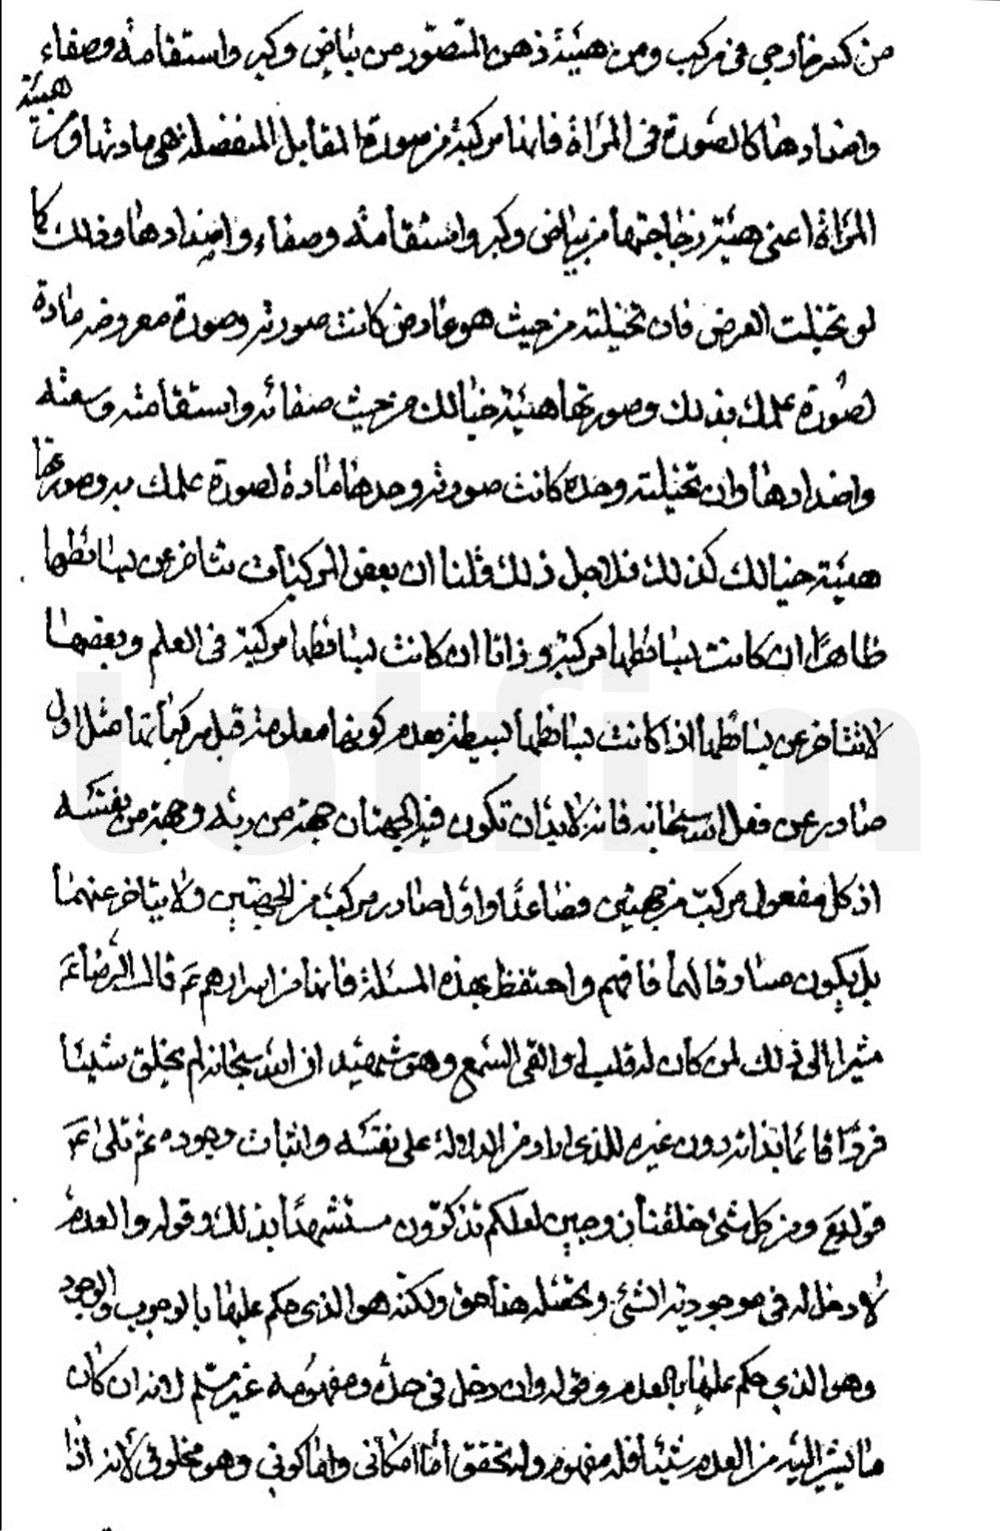 من كسر خارجي في مركب ومن هيئة ذهن المتصوّر من بياض وكبر واستقامة وصفاء
واضدادها كالصورة في المرآة فانها مركبة من صورة المقابل المنفصلة هي مادتها ومن هيئة
المرآة اعنى هيئة زجاجتها من بياض وكبر واستقامة وصفاء واضدادها وذلك كما
لو تخيلت العرض فان تخيلته من حيث هو عارض كانت صورته وصورة معروضه مادة
لصورة علمك بذلك وصورتها هيئة خيالك من حيث صفائه واستقامته وسعته
واضدادها وان تخيلته وحده كانت صورته وحدها مادة لصورة علمك به وصورتها
هيئة خيالك كذلك فلاجل ذلك قلنا ان بعض المركبات تتاخر عن بسائطها
ظاهرا ان كانت بسائطها مركبة وذاتا ان كانت بسائطها مركبة في العلم وبعضها
لا تتاخر عن بسائطها اذا كانت بسائطها بسيطة بعدم كونها معلومة قبل مركباتها مثل اول
صادر عن فعل الله سبحانه فانه لا بد ان تكون فيه الجهتان جهة من ربه وجهة من نفسه
اذ كل مفعول مركب من جهتين فصاعدا واول صادر مركب من الجهتين ولا يتاخر عنهما
بل يكون مساوقا لهما فافهم واحتفظ بهذه المسئلة فانها من اسرارهم ع قال الرضا ع
مشيرا الى ذلك لمن كان له قلب او القى السمع وهو شهيد ان الله سبحانه لم يخلق شيئا
فردا قائما بذاته دون غيره للذي اراد من الدلالة على نفسه واثبات وجوده ثم تلى ع
قوله تع ومن كل شئ خلقنا زوجين لعلكم تذكرون مستشهدا بذلك وقوله والعدم
لا دخل له في موجودية الشئ وتحصله هذا حق ولكنه هو الذي حكم عليها بالوجوب والوجود
وهو الذي حكم عليها بالعدم وقوله وان دخل في حده ومفهومه غير مسلم لانه ان كان
ما يشير اليه من العدم شيئا فله مفهوم وله تحقق اما امكاني واما كوني وهو مخلوق لانه اذا
totfim